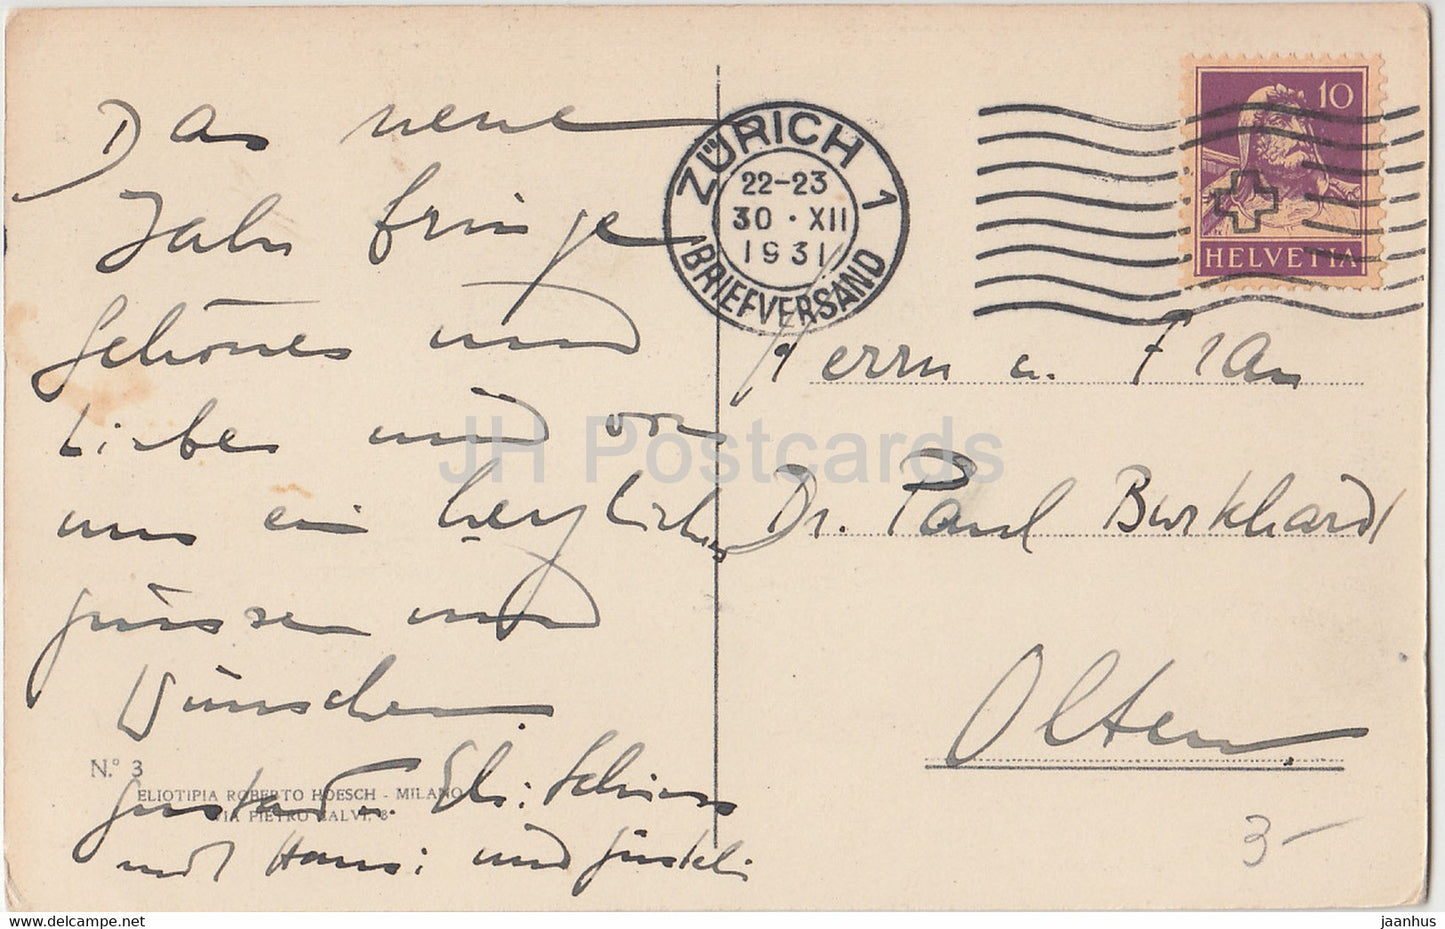 Das neue
Jahr bringe
Schönes und
Liebes und von
uns ein herzliches
grüssen und
Wünschen.
Gustav u. Els: Schiess
mit Hans: und Gusteli
N.° 3
ELIOTIPIA ROBERTO HOESCH - MILANO
VIA PIETRO CALVI, 8
ZÜRICH 1
22-23
30 · XII
1931
BRIEFVERSAND
10
HELVETIA
Herrn u. Frau
Dr. Paul Burkhardt
Olten
3-
JH Postcards
www.delcampe.net
jaanhus